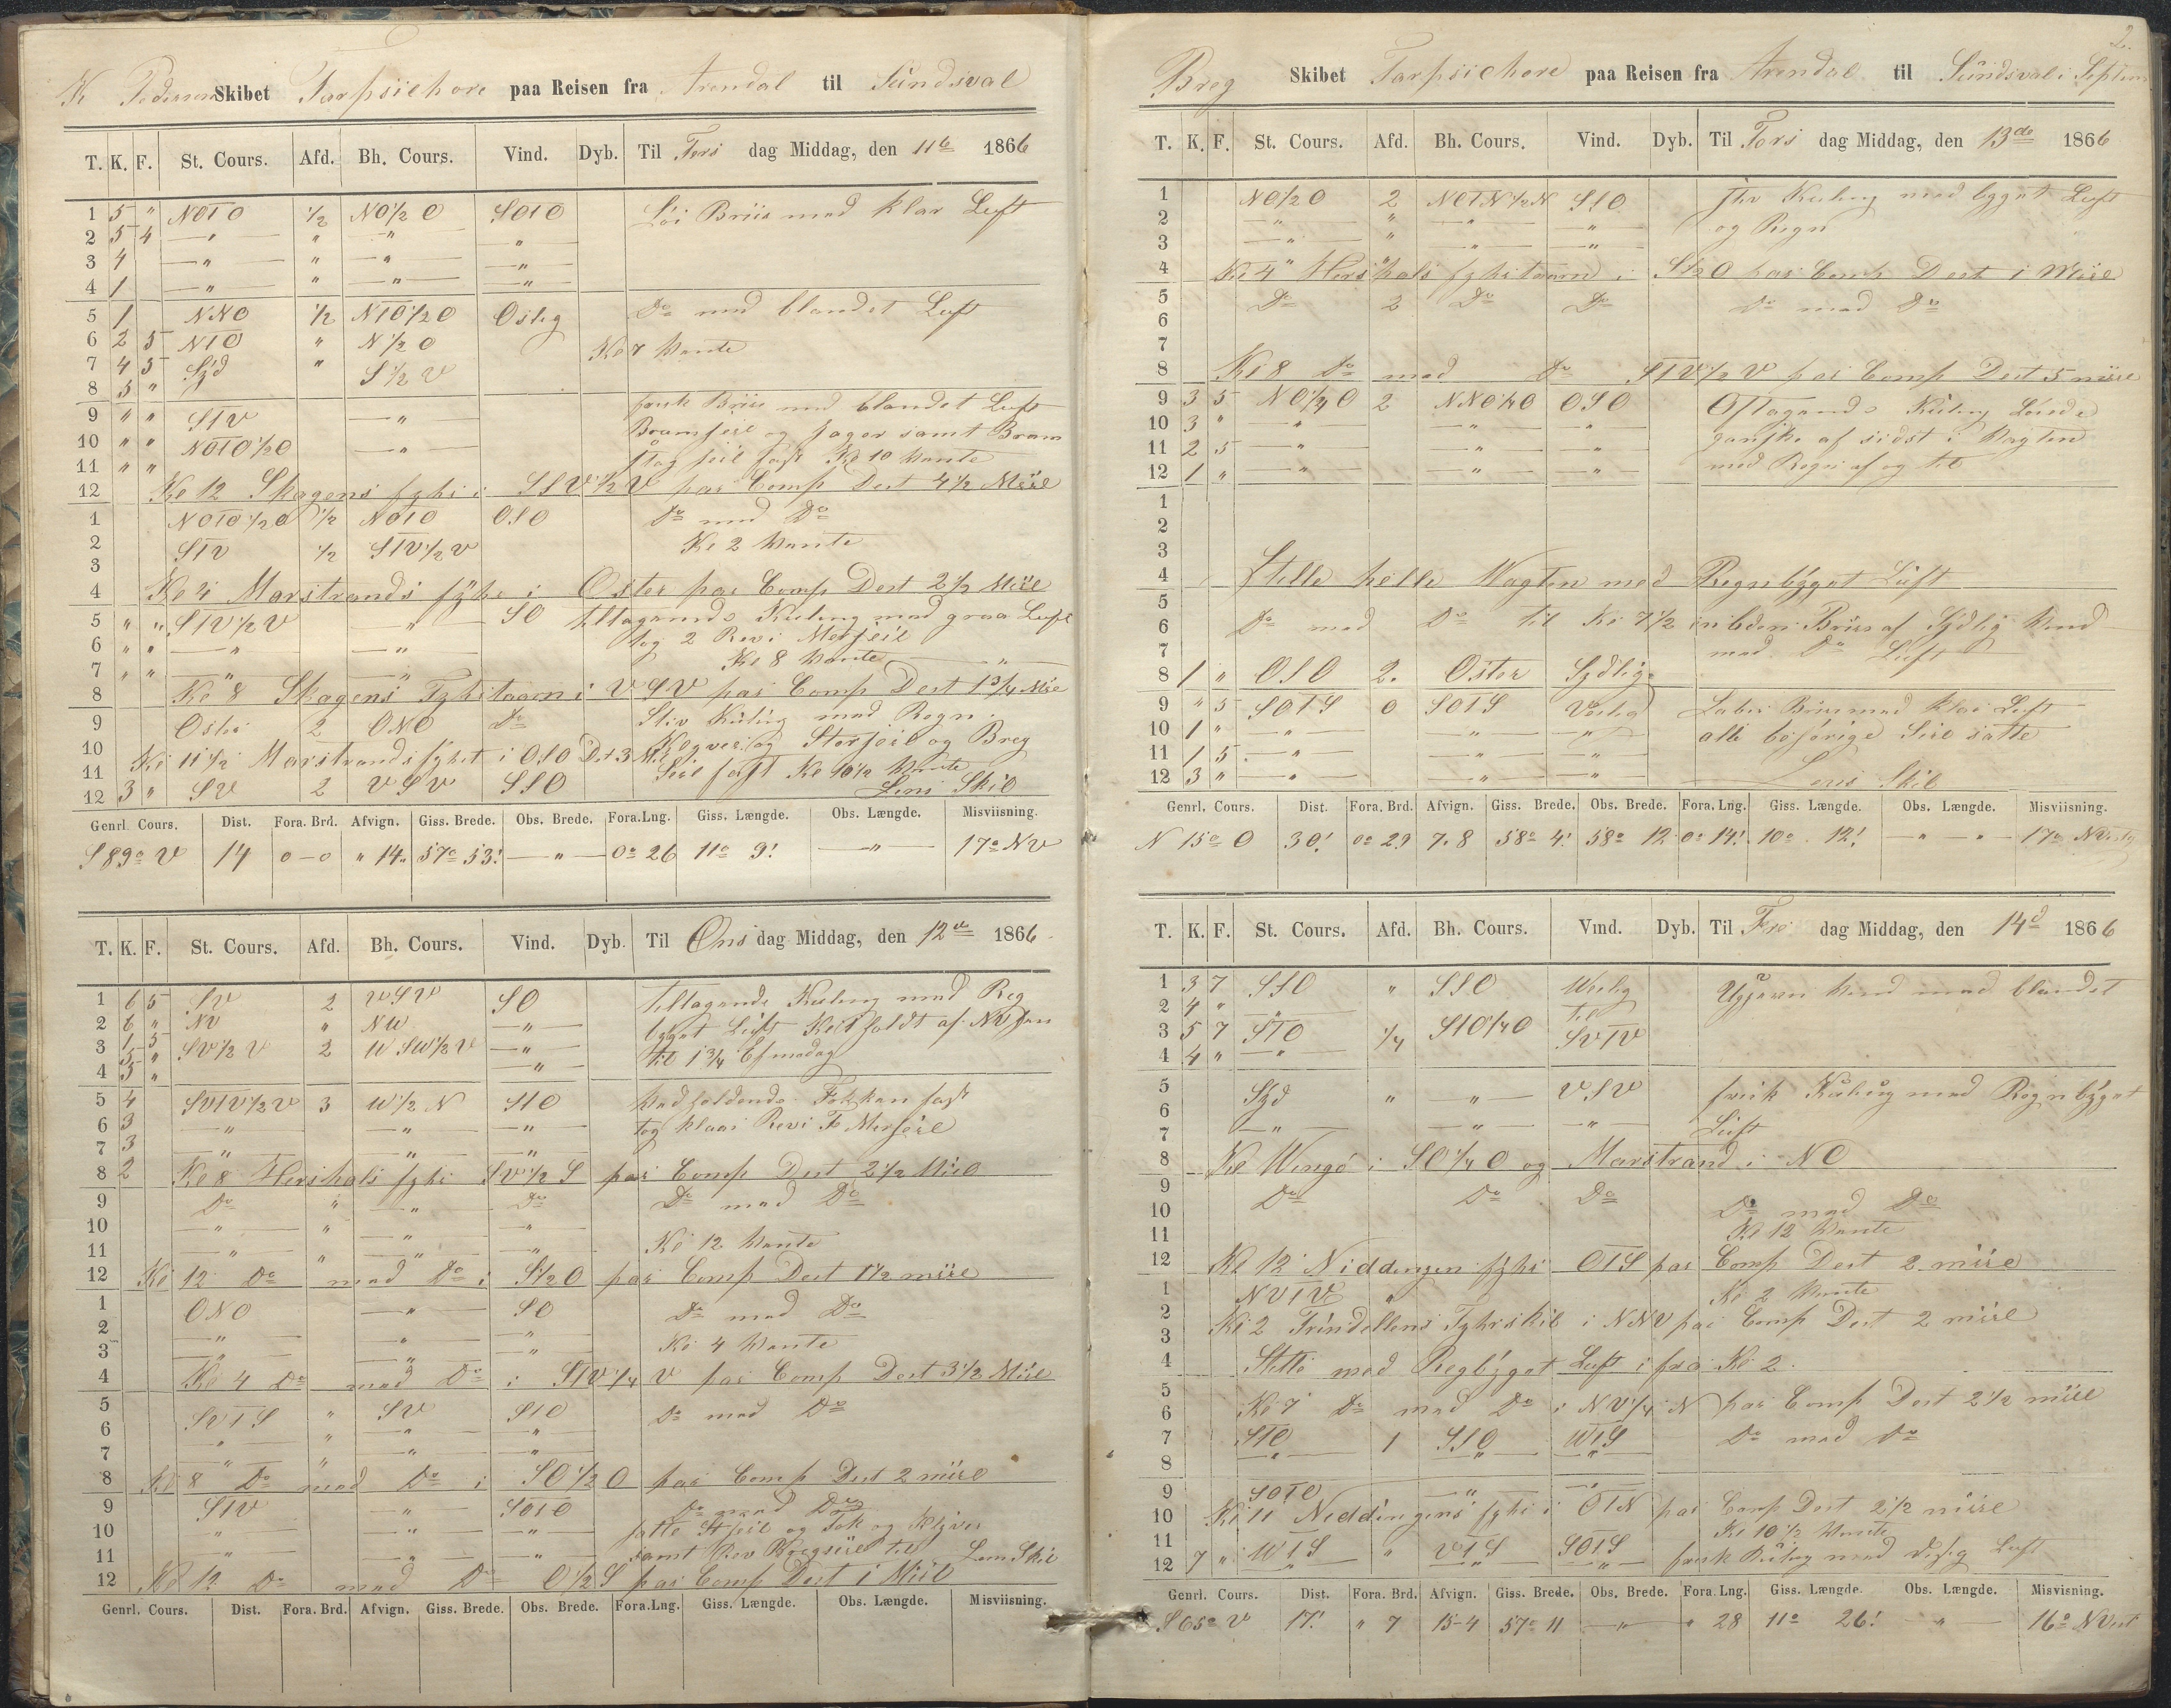 K Pedersen Skibet Tarpsichore paa Reisen fra Arendal til Sundsval
T. K. F. St. Cours. Afd. Bh. Cours. Vind. Dyb. Til Tirs dag Middag, den 11te 1866
1 5 " NOTO 1/2 NO 1/2 O SOTO Löi Briis med klar Luft
2 5 4 — " — " — " — — " —
3 4 — " — " — " — — " —
4 1 — " — " — " — — " —
5 1 NNO 1/2 NTO 1/2 O Ostlig Do med blandet Luft
6 2 5 NTO " N 1/2 O
Kl 7 Vente
7 4 5 Syd " S 1/2 V
8 5 "
9 " " STV — " — frisk Briis med blandet Luft
10 " " NOTO 1/2 O — " — Bramseil og Jager samt Bram
11 " " stag seil fast Kl 10 Vente
12 Kl 12 Skagens fyhr i SSV 1/2 V par Comp Dest 4 1/2 Miil
1 NOTO 1/2 O 1/2 NOTO OSO Do med Do
2 STV 1/2 STV 1/2 V Kl 2 Vente
3
4 Kl 4 Marstrands fyhr i Oster par Comp Dest 2 1/2 Miil
5 " " STV 1/2 V — " — SO tiltagende Kuling med graa Luft
6 " " — " — — " — tog 2 Rev i Merseil
7 " " — " — — " — Kl 8 Vente — " —
8 Kl 8 Skagens Fyhrtaarn i VSV par Comp Dest 1 3/4 Mil
9 Oster 2 ONO Do Stiv Kuling med Regn
10 Klyver og Storseil og Breg
11 Kl 11 1/2 Marstrands fyhrt i OSO Dst 3 Mil Seil fast Kl 10 1/2 Vente
12 3 " SV 2 VSV SSO Lens Skib
Genrl. Cours. Dist. Fora. Brd. Afvign. Giss. Brede. Obs. Brede. Fora.Lng. Giss. Længde. Obs. Længde. Misviisning.
S 89° V 14 0–0 " 14 " 57° 53' — " — 0° 26 11° 9' — " — 17° NV
T. K. F. St. Cours. Afd. Bh. Cours. Vind. Dyb. Til Ons dag Middag, den 12te 1866
1 6 5 SV 2 VSV SO tiltagende Kuling med Reg
2 6 " NV " NW — " — bygat Luft
3 1 5 SV 1/2 V 2 WSW 1/2 V — " — til 1 3/4 Efmedag
4 5 " — " —
5 4 SVTV 1/2 V 3 W 1/2 N STO Vedholdende fast
6 3 — " — — " — — " — tog klaas Rev i F Merseil
7 3 — " — — " — — " —
8 2 Kl 8 Hershals fyhr SV 1/2 S par Comp Dest 2 1/2 Miil
9 Do " — " — Do Do med Do
10 — " — " — " — — " —
11 — " — " — " — — " — Kl 12 Vente
12 Kl 12 Do med Do i S 1/2 O par Comp Dest 1 1/2 miil
1 ONO — " — SO Do med Do
2 — " — — " — — " —
3 — " — — " — — " — Kl 4 Vente
4 Kl 4 Do med Do i STV 1/4 V par Comp Dest 3 1/2 Miil
5 SVTS " SV STO Do med Do
6 — " — " — " — — " —
7 — " — " — " — — " —
8 Kl 8 Do med Do i SO 1/2 O par Comp Dest 2 miil
9 STV — " — SOTO Do med Do
10 — " — — " — — " — satte Stseil og Fok og Klyver
11 — " — — " — — " — samt Rev Bregseil til Lens Skib
12 Kl 12 Do med Do O 1/2 S par Comp Dest 1 Miil
Genrl. Cours. Dist. Fora. Brd. Afvign. Giss. Brede. Obs. Brede. Fora.Lng. Giss. Længde. Obs. Længde. Misviisning.
2.
Breg Skibet Tarpsichore paa Reisen fra Arendal til Sundsval i Septem
T. K. F. St. Cours. Afd. Bh. Cours. Vind. Dyb. Til Tors dag Middag, den 13de 1866
1 NO 1/2 O 2 NOTN 1/2 N SSO Stiv Kuling med bygat Luft
2 — " — " — " — — " — og Regn
3 — " — " — " — — " —
4 Kl 4 Hershals fyhrtaarn i S 1/2 O par Comp Dest 1 Miil
5 Do 2 Do Do Do med Do
6
7
8 Kl 8 Do med Do STV 1/2 V par Comp Dest 5 miil
9 3 5 NO 1/4 O 2 NNO 1/4 O OSO Aftagende Kuling Löiede
10 3 " — " — — " — — " — ganske af sidst i Vagten
11 2 5 — " — — " — — " — med Regn af og til
12 1 " — " — — " — — " —
1
2
3
4 Stille hele Vagten med Regnbygat Luft
5
6 Do med Do til Kl 7 1/2 en laber Briis af Sydlig Vind
7 med Do Luft
8 1 " OSO 2. Oster Sydlig
9 " 5 SOTS 0 SOTS Vestlig Laber Briis med klar Luft
10 1 " — " — — " — — " — alle böiörige Seil satte
11 1 5 — " — — " — — " —
12 3 " — " — — " — — " — Lens Skib
Genrl. Cours. Dist. Fora. Brd. Afvign. Giss. Brede. Obs. Brede. Fora. Lng. Giss. Længde. Obs. Længde. Misviisning.
N 15° O 30' 0° 29 7.8 58° 4' 58° 12 0° 14' 10° 12' — " — " — 17° NVestlig
T. K. F. St. Cours. Afd. Bh. Cours. Vind. Dyb. Til Fre dag Middag, den 14d 1866
1 3 7 SSO " SSO Westlig Ujævn Vind med blandet
2 4 " — " — til
3 5 7 STO 1/4 STO 1/4 O SVTV
4 4 " — " —
5 Syd " — " — VSV frisk Kuling med Regnbygat
6 — " — — " — — " — Luft
7
8 Kl Wingö i SO 1/4 O og Marstrand i NO
9 Do Do Do
10 Do med Do
11 Kl 12 Vente
12 Kl 12 Niddengen fyhr OTS par Comp Dest 2 miil
1 NVTV " Kl 2 Vente
2 Kl 2 Trindellens Fyhrskib i NNV par Comp Dest 2 miil
3
4 Stille med Regbygat Luft i fra Kl 2.
5
6 Kl 7 Do med Do i NV 1/4 N par Comp Dest 2 1/2 miil
7 STO 1 SSO WTS Do med Do
8 — " — — " — — " —
9 SOTO — " — — " —
10 Kl 11 Niddingens fyhr i OTN par Comp Dest 2 1/2 miil
11 Kl 10 1/2 Vente
12 7 " WTS " VTS SOTS frisk Kuling med disig Luft
Genrl. Cours. Dist. Fora. Brd. Afvign. Giss. Brede. Obs. Brede. Fora. Lng. Giss. Længde. Obs. Længde. Misvisning.
S 65° V 17' " 7 15-4 57° 11 — " — " 28 11° 26' — " — 16° NVest